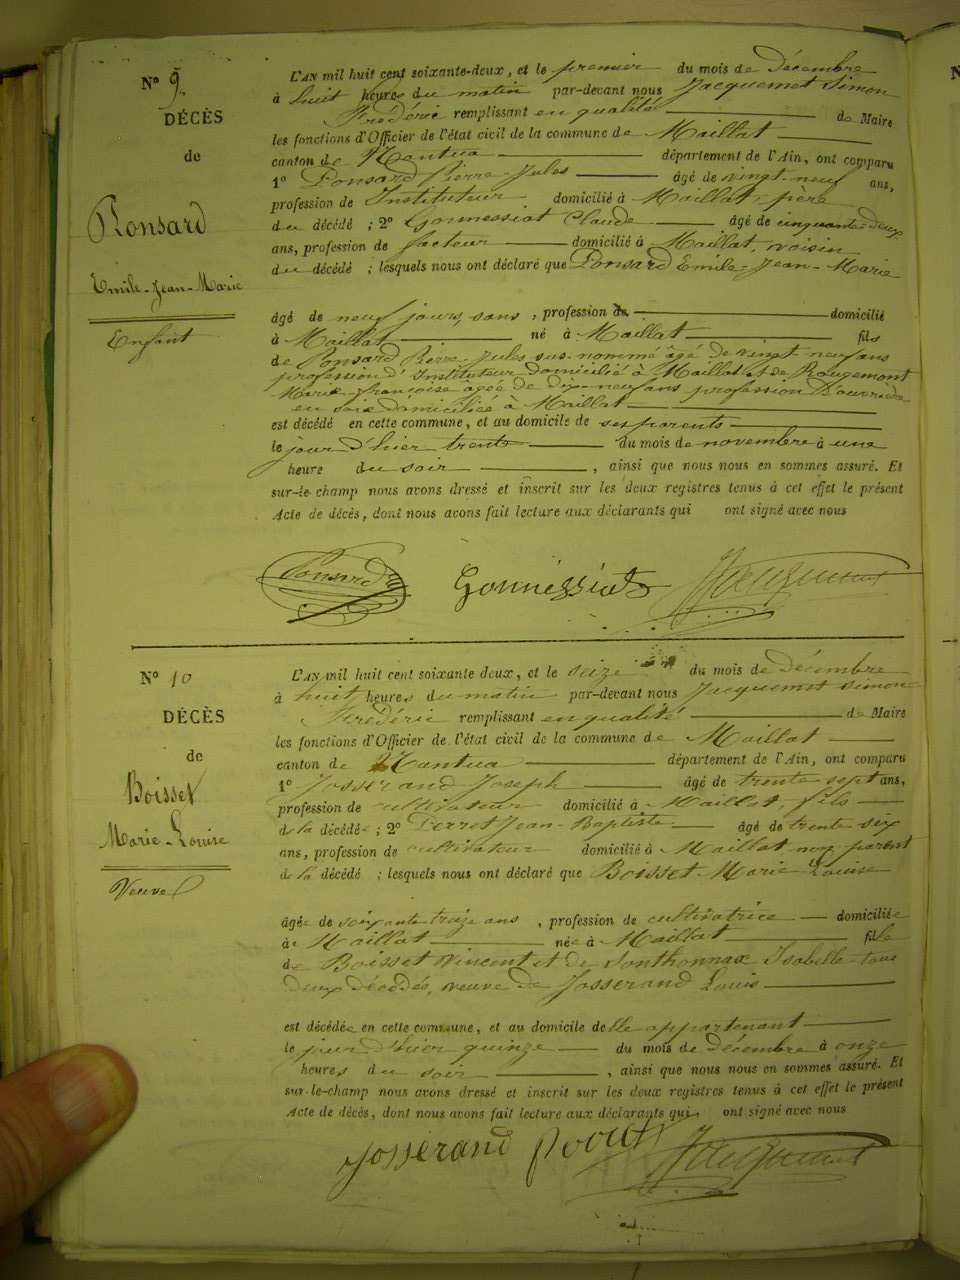 N° 9
DÉCÈS
de
Ponsard
Emile-Jean-Marie
Enfant
L'AN mil huit cent soixante-deux, et le premier du mois de Décembre
à huit heures du matin par-devant nous Jacquemet Simon
Frédéric remplissant en qualité de Maire
les fonctions d'Officier de l'état civil de la commune de Maillat
canton de Nantua département de l'Ain, ont comparu
1° Ponsard Pierre-Jules âgé de vingt-neuf ans,
profession de Instituteur domicilié à Maillat, père
du décédé ; 2° Gonnessiat Claude âgé de cinquante-deux
ans, profession de facteur domicilié à Maillat, voisin
du décédé ; lesquels nous ont déclaré que Ponsard Emile-Jean-Marie
âgé de neuf jours, sans, profession de domicilié
à Maillat né à Maillat fils
de Ponsard Pierre-Jules sus-nommé âgé de vingt neuf ans
profession d'Instituteur domicilié à Maillat et de Rougemont
Marie-françoise âgée de dix-neuf ans profession D'ouvrière
en soie domiciliée à Maillat
est décédé en cette commune, et au domicile de ses parents
le jour d'hier trente du mois de novembre à une
heure du soir, ainsi que nous nous en sommes assuré. Et
sur-le champ nous avons dressé et inscrit sur les deux registres tenus à cet effet le présent
Acte de décès, dont nous avons fait lecture aux déclarants qui ont signé avec nous
Ponsard Gonnessiat Jacquemet
N° 10
DÉCÈS
de
Boisset
Marie-Louise
Veuve
L'AN mil huit cent soixante deux, et le seize du mois de Décembre
à huit heures du matin par-devant nous Jacquemet Simon
Frédéric remplissant en qualité de Maire
les fonctions d'Officier de l'état civil de la commune de Maillat
canton de Nantua département de l'Ain, ont comparu
1° Josserand Joseph âgé de trente sept ans,
profession de cultivateur domicilié à Maillat, fils
de la décédée ; 2° Perret Jean-Baptiste âgé de trente six
ans, profession de cultivateur domicilié à Maillat non parent
de la décédée ; lesquels nous ont déclaré que Boisset Marie Louise
âgée de soixante treize ans, profession de cultivatrice domiciliée
à Maillat née à Maillat fille
de Boisset Vincent et de Sonthonnax Isabelle tous
deux décédés, veuve de Josserand Louis
est décédée en cette commune, et au domicile de lle appartenant
le jour d'hier quinze du mois de Décembre à onze
heures du soir, ainsi que nous nous en sommes assuré. Et
sur-le-champ nous avons dressé et inscrit sur les deux registres tenus à cet effet le présent
Acte de décès, dont nous avons fait lecture aux déclarants qui ont signé avec nous
Josserand Jacquemet